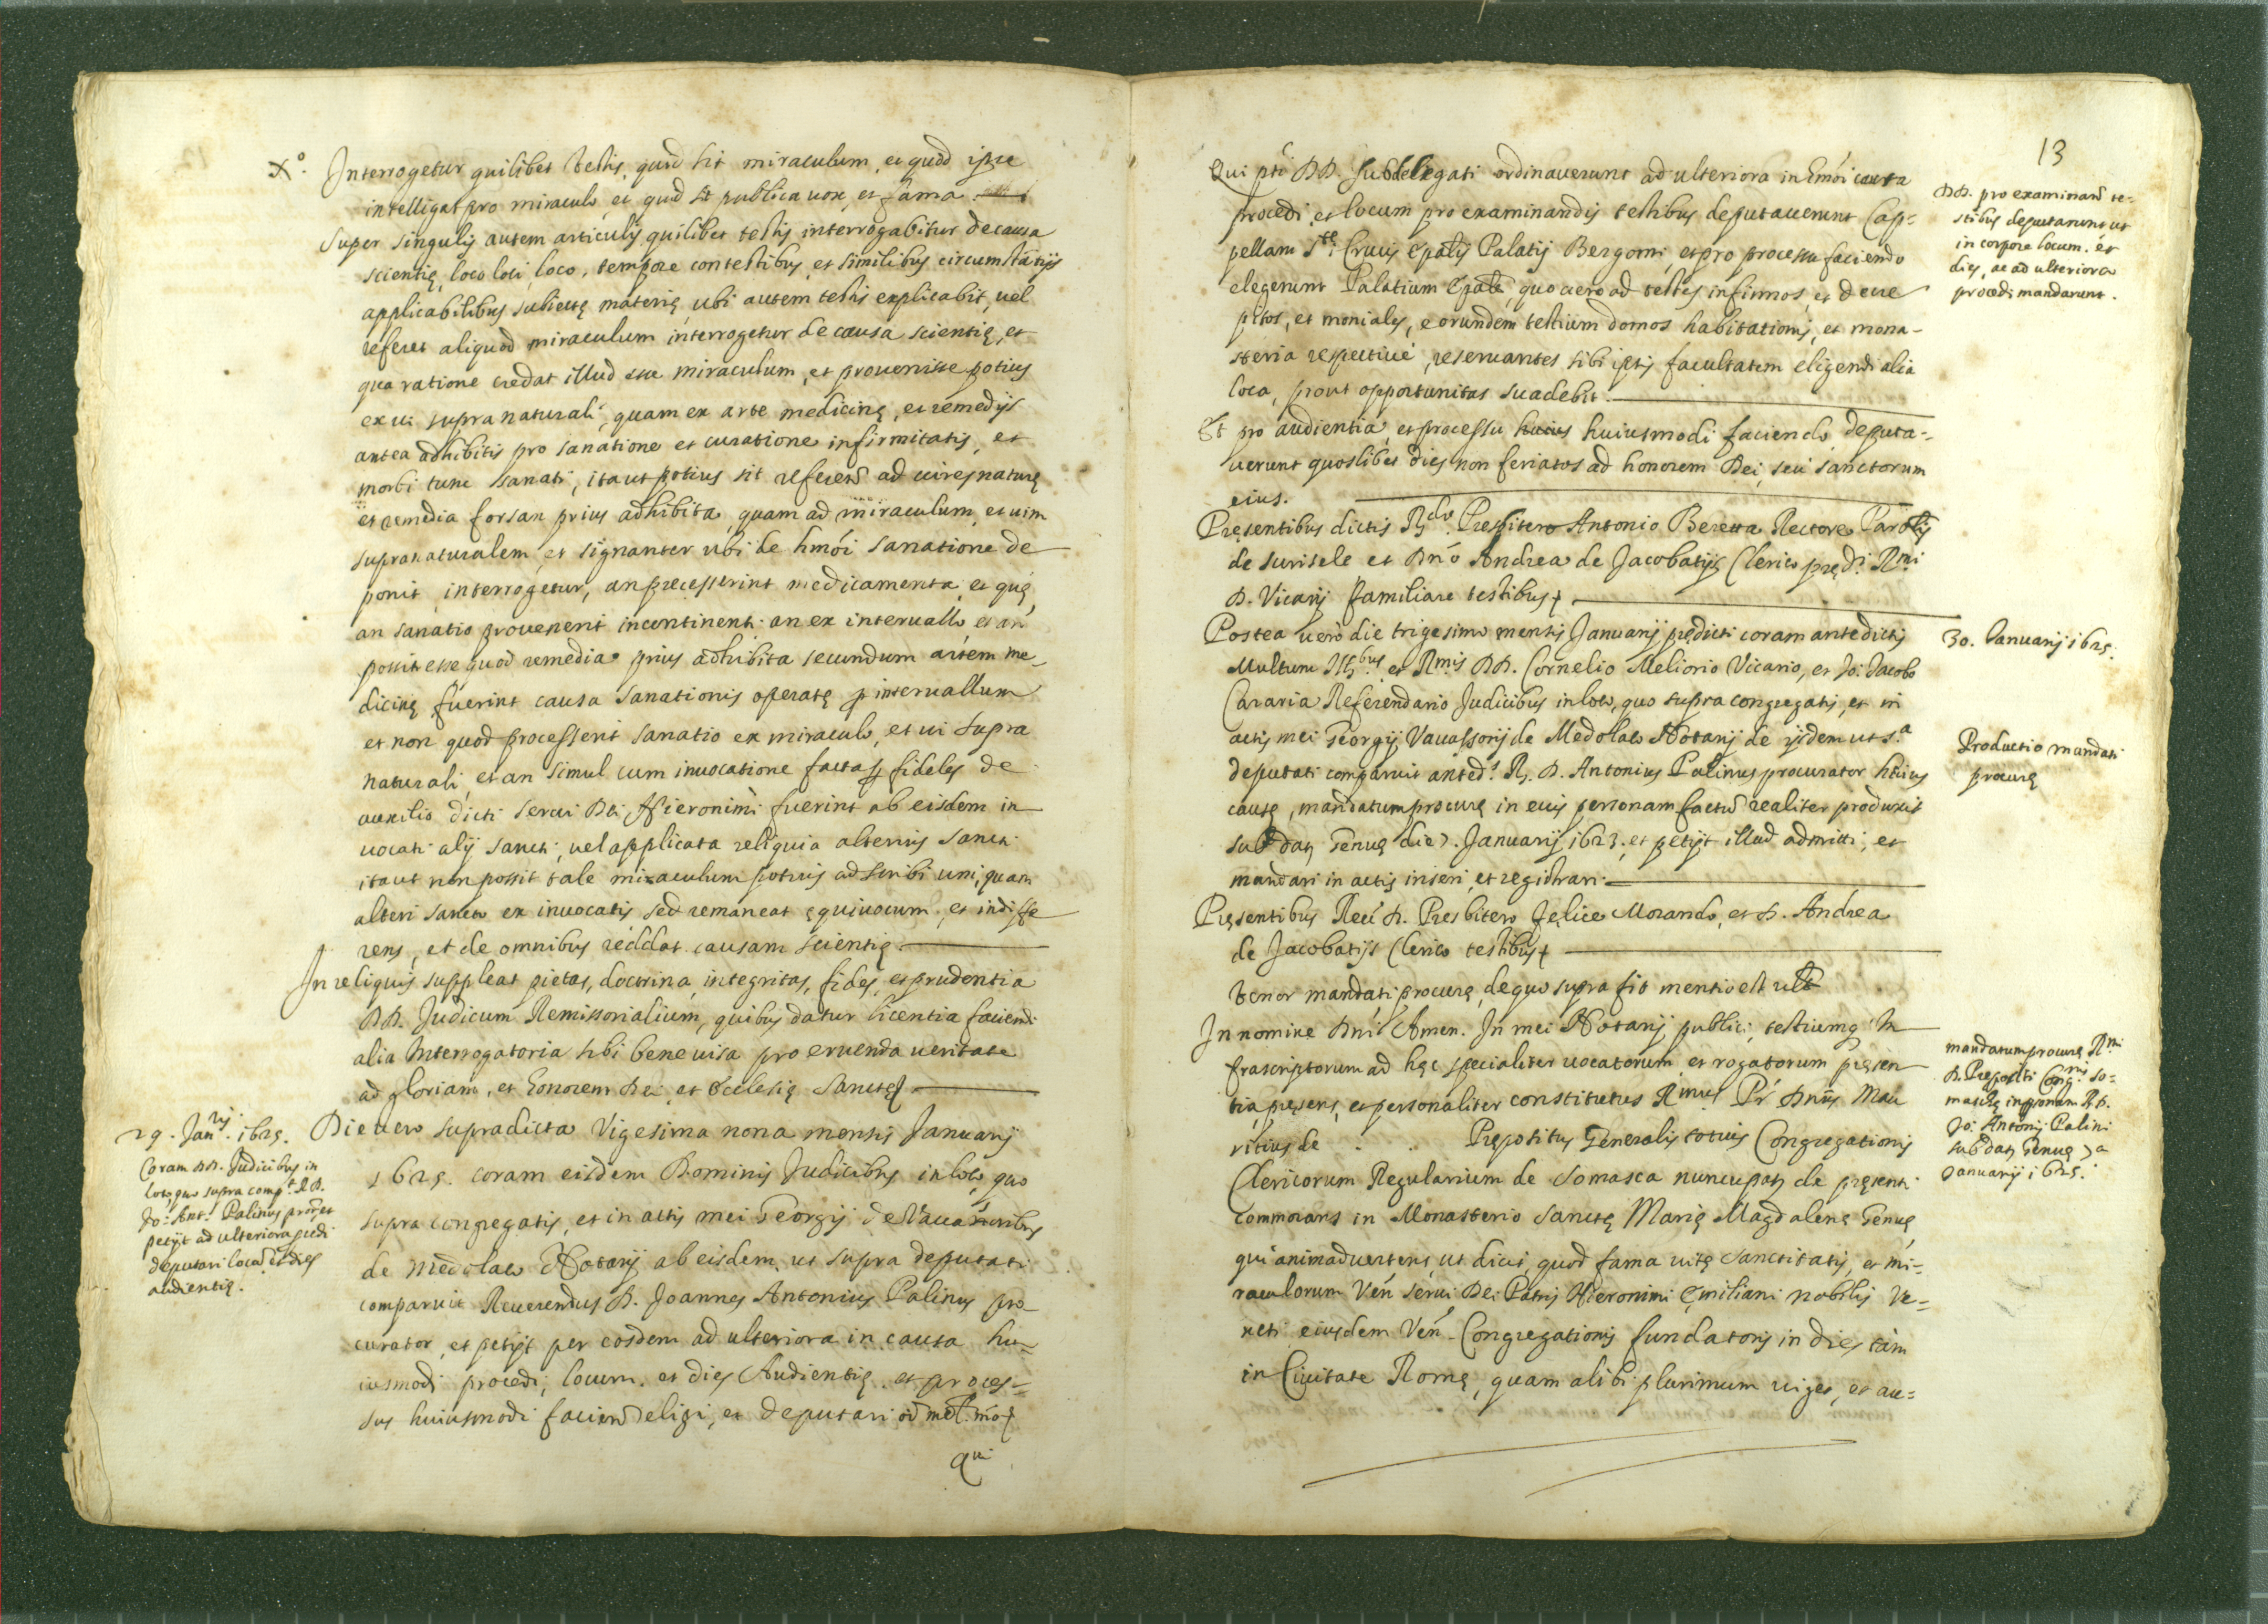 X.° Interrogetur quilibet testis, quid sit miraculum, et quod ipse
intelligat pro miraculo, et quid sit publica vox, et fama
Super singulis autem articulis quilibet testis interrogabitur de causa
scientię, loco loci, loco, tempore contestibus, et similibus circumstātijs
applicabilibus subiectę materię, ubi autem testis explicabit, uel
referet aliquod miraculum interrogetur de causa scientię, et
qua ratione credat illud esse miraculum, et prouenisse potius
ex ui supra naturali, quam ex arte medicinę, et remedijs
antea adhibitis pro sanatione et curatione infirmitatis, et
morbi tunc sanati, ita ut potius sit referēd ad uires naturę
et remedia forsan prius adhibita, quam ad miraculum, et uim
supranaturalem, et signanter ubi de hmōi sanatione de
ponit, interrogetur, an precesserint medicamenta, et quę,
an sanatio prouenerit incontinenti an ex interuallo, et an
possit esse quod remedia prius adhibita secundum artem me_
dicinę fuerint causa sanationis operatę p interuallum
et non quod processerit sanatio ex miraculo, et ui supra
naturali, et an simul cum inuocatione facta p fideles de
auxilio dicti serui Dei Hieronimi fuerint ab eisdem in
uocati alij sancti, uel applicata reliquia alterius sancti
ita ut non possit tale miraculum potius adscribi uni, quam
alteri sancto ex inuocatis, sed remaneat ęquiuocum, et indiffe
rens, et de omnibus reddat causam scientię.
In reliquis suppleat pietas, doctrina, integritas, fides, et prudentia
DD. Judicum Remissorialium, quibus datur licentia faciendi
alia Interrogatoria sibi bene uisa pro eruenda ueritate
ad gloriam, et honorem Dei, et Ecclesię Sanctę
29. Jan.rij 1625.
Coram DD. Judicibus in
loco, quo supra comp.t R.D.
Jo: Ant.s Palinus pror̄, et
petijt ad ulteriora p̄cedi
deputari locū et dies
audientię.
Die uero supradicta Vigesima nona mensis Januarij
1625. coram eisdem Dominis Judicibus in loco, quo
supra congregatis, et in actis mei Georgij de Vauassoribus
de Medolaco Notarij ab eisdem, ut supra deputati
comparuit Reuerendus D. Joannes Antonius Palinus pro
curator, et petijt per eosdem ad ulteriora in causa hu=
iusmodi procedi, locum, et dies Audientię, et proces=
sus huiusmodi faciend eligi, et deputari
qui
13
Qui pti DD. Subdelegati ordinauerunt ad ulteriora in hmōi causa
procedi, et locum pro examinandis testibus deputauerunt Cap=
pellam S.tę Crucis Epālis Palatij Bergomi, et pro processu faciendo
elegerunt Palatium Epāle, quo uero ad testes infirmos, et decre
pitos, et moniales, eorundem testium domos habitationis, et mona-
steria respectiuè, reseruantes sibi ipsis facultatem eligendi alia
loca, prout opportunitas suadebit.
DD. pro examinand te=
stibus deputarunt ut
in corpore locum, et
dies, ac ad ulteriora
procedi mandarunt.
Et pro audientia, et processu huius huiusmodi faciendo deputa-
uerunt quoslibet dies non feriatos ad honorem Dei, seu sanctorum
eius.
Pręsentibus dictis R.do Presbitero Antonio Beretta Rectore Parōlis
de Surisele et Dnō Andrea de Jacobatijs Clerico pręd.i R.mi
D. Vicarij familiare testibus
30. Januarij 1625.
Postea uero die trigesimo mensis Januarij prędicti coram antedictis
Multum Ill.bus et R.mis DD. Cornelio Meliorio Vicario, et Jo. Jacobo
Cararia Referendario Judicibus in loco, quo supra congregatis, et in
actis mei Georgij Vauassorij de Medolaco Notarij de ijsdem ut s.a
deputati comparuit anted.s R. D. Antonius Palinus procurator huius
causę, mandatum procurę in eius personam factū realiter produxit
sub dat Genuę die 7. Januarij 1623, et petijt illud admitti, et
mandari in actis inseri, et registrari.
Productio mandati
procurę
Pręsentibus Reu. D. Presbitero Felice Morando, et D. Andrea
de Jacobatijs Clerico testibus
Tenor mandati procurę, de quo supra fit mentio est
In nomine Dnī Amen. In mei Notarij publici, testiumq In
frascriptorum ad hęc specialiter uocatorum, et rogatorum pręsen
tia pręsens, et personaliter constitutus R.mus Pr̄ Dnūs Mau
ritius de . . . Prępositus Generalis totius Congregationis
Clericorum Regularium de Somasca nuncupat de pręsenti
commorans in Monasterio Sanctę Marię Magdalenę Genuę,
qui animaduertens, ut dicit, quod fama uitę sanctitatis, et mi=
raculorum Ven. serui Dei Patris Hieronimi Ęmiliani nobilis Ve=
neti eiusdem Ven. Congregationis fundatoris in dies tam
in Ciuitate Romę, quam alibi plurimum uiget, et au=
mandatum procurę R.mi
D. Prepositi Cong.nis So=
maschę in psonam R.D.
Jo: Antonij Palini
sub dat Genuę 7.a
Januarij 1625.